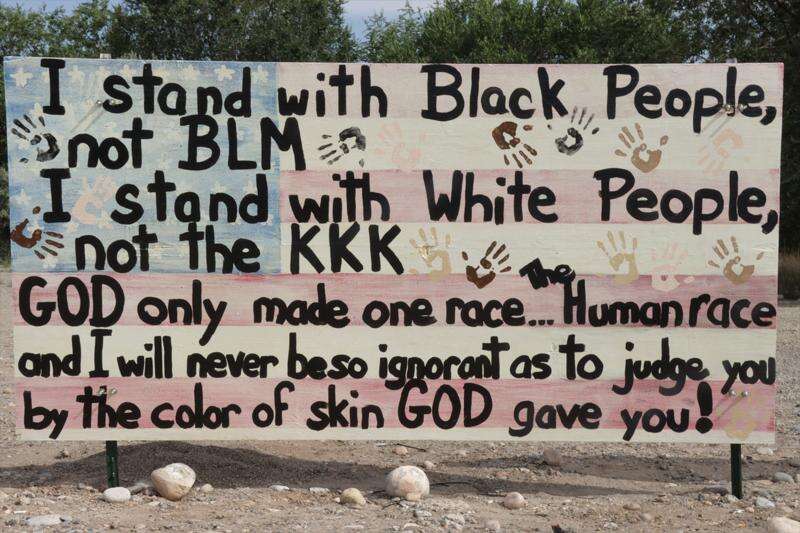 I stand with Black People,
not BLM
I stand with White People,
not the KKK
GOD only made one race... The Human race
and I will never be so ignorant as to judge you
by the color of skin GOD gave you!